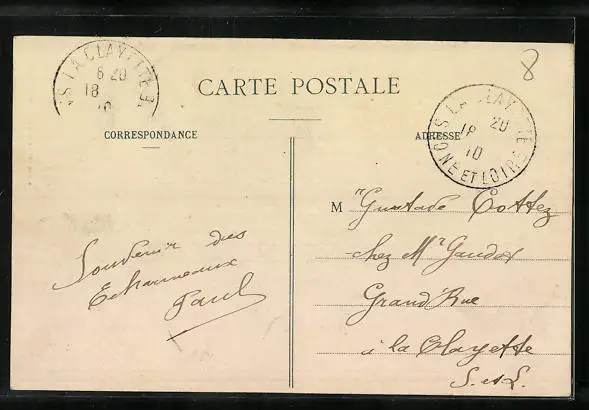 8
LA CLAYETTE
6 20
18
CARTE POSTALE
LA CLAYETTE
20
18
10
SAONE ET LOIRE
CORRESPONDANCE
ADRESSE
Mr Gustave Cottez
chez Mr Gaudox
Grand'Rue
à la Clayette
S. et L.
Souvenir des
Echarmeaux
Paul